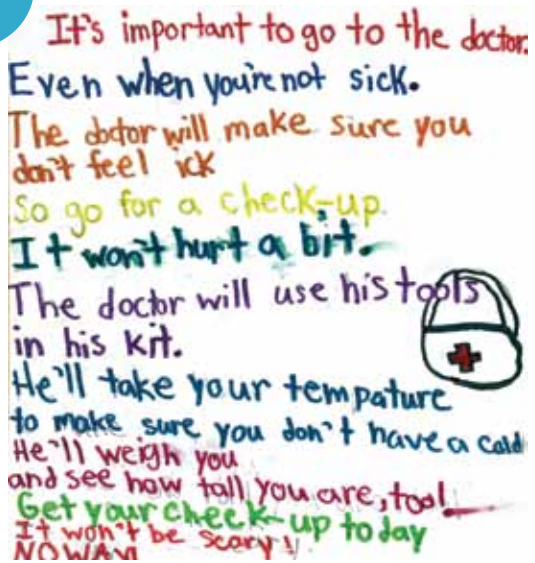 It's important to go to the doctor.
Even when you're not sick.
The doctor will make sure you
don't feel ick
So go for a check-up.
It won't hurt a bit.
The doctor will use his tools
in his kit.
He'll take your tempature
to make sure you don't have a cold
He'll weigh you
and see how tall you are, too!
Get your check-up today
It won't be scary!
NO WAY!